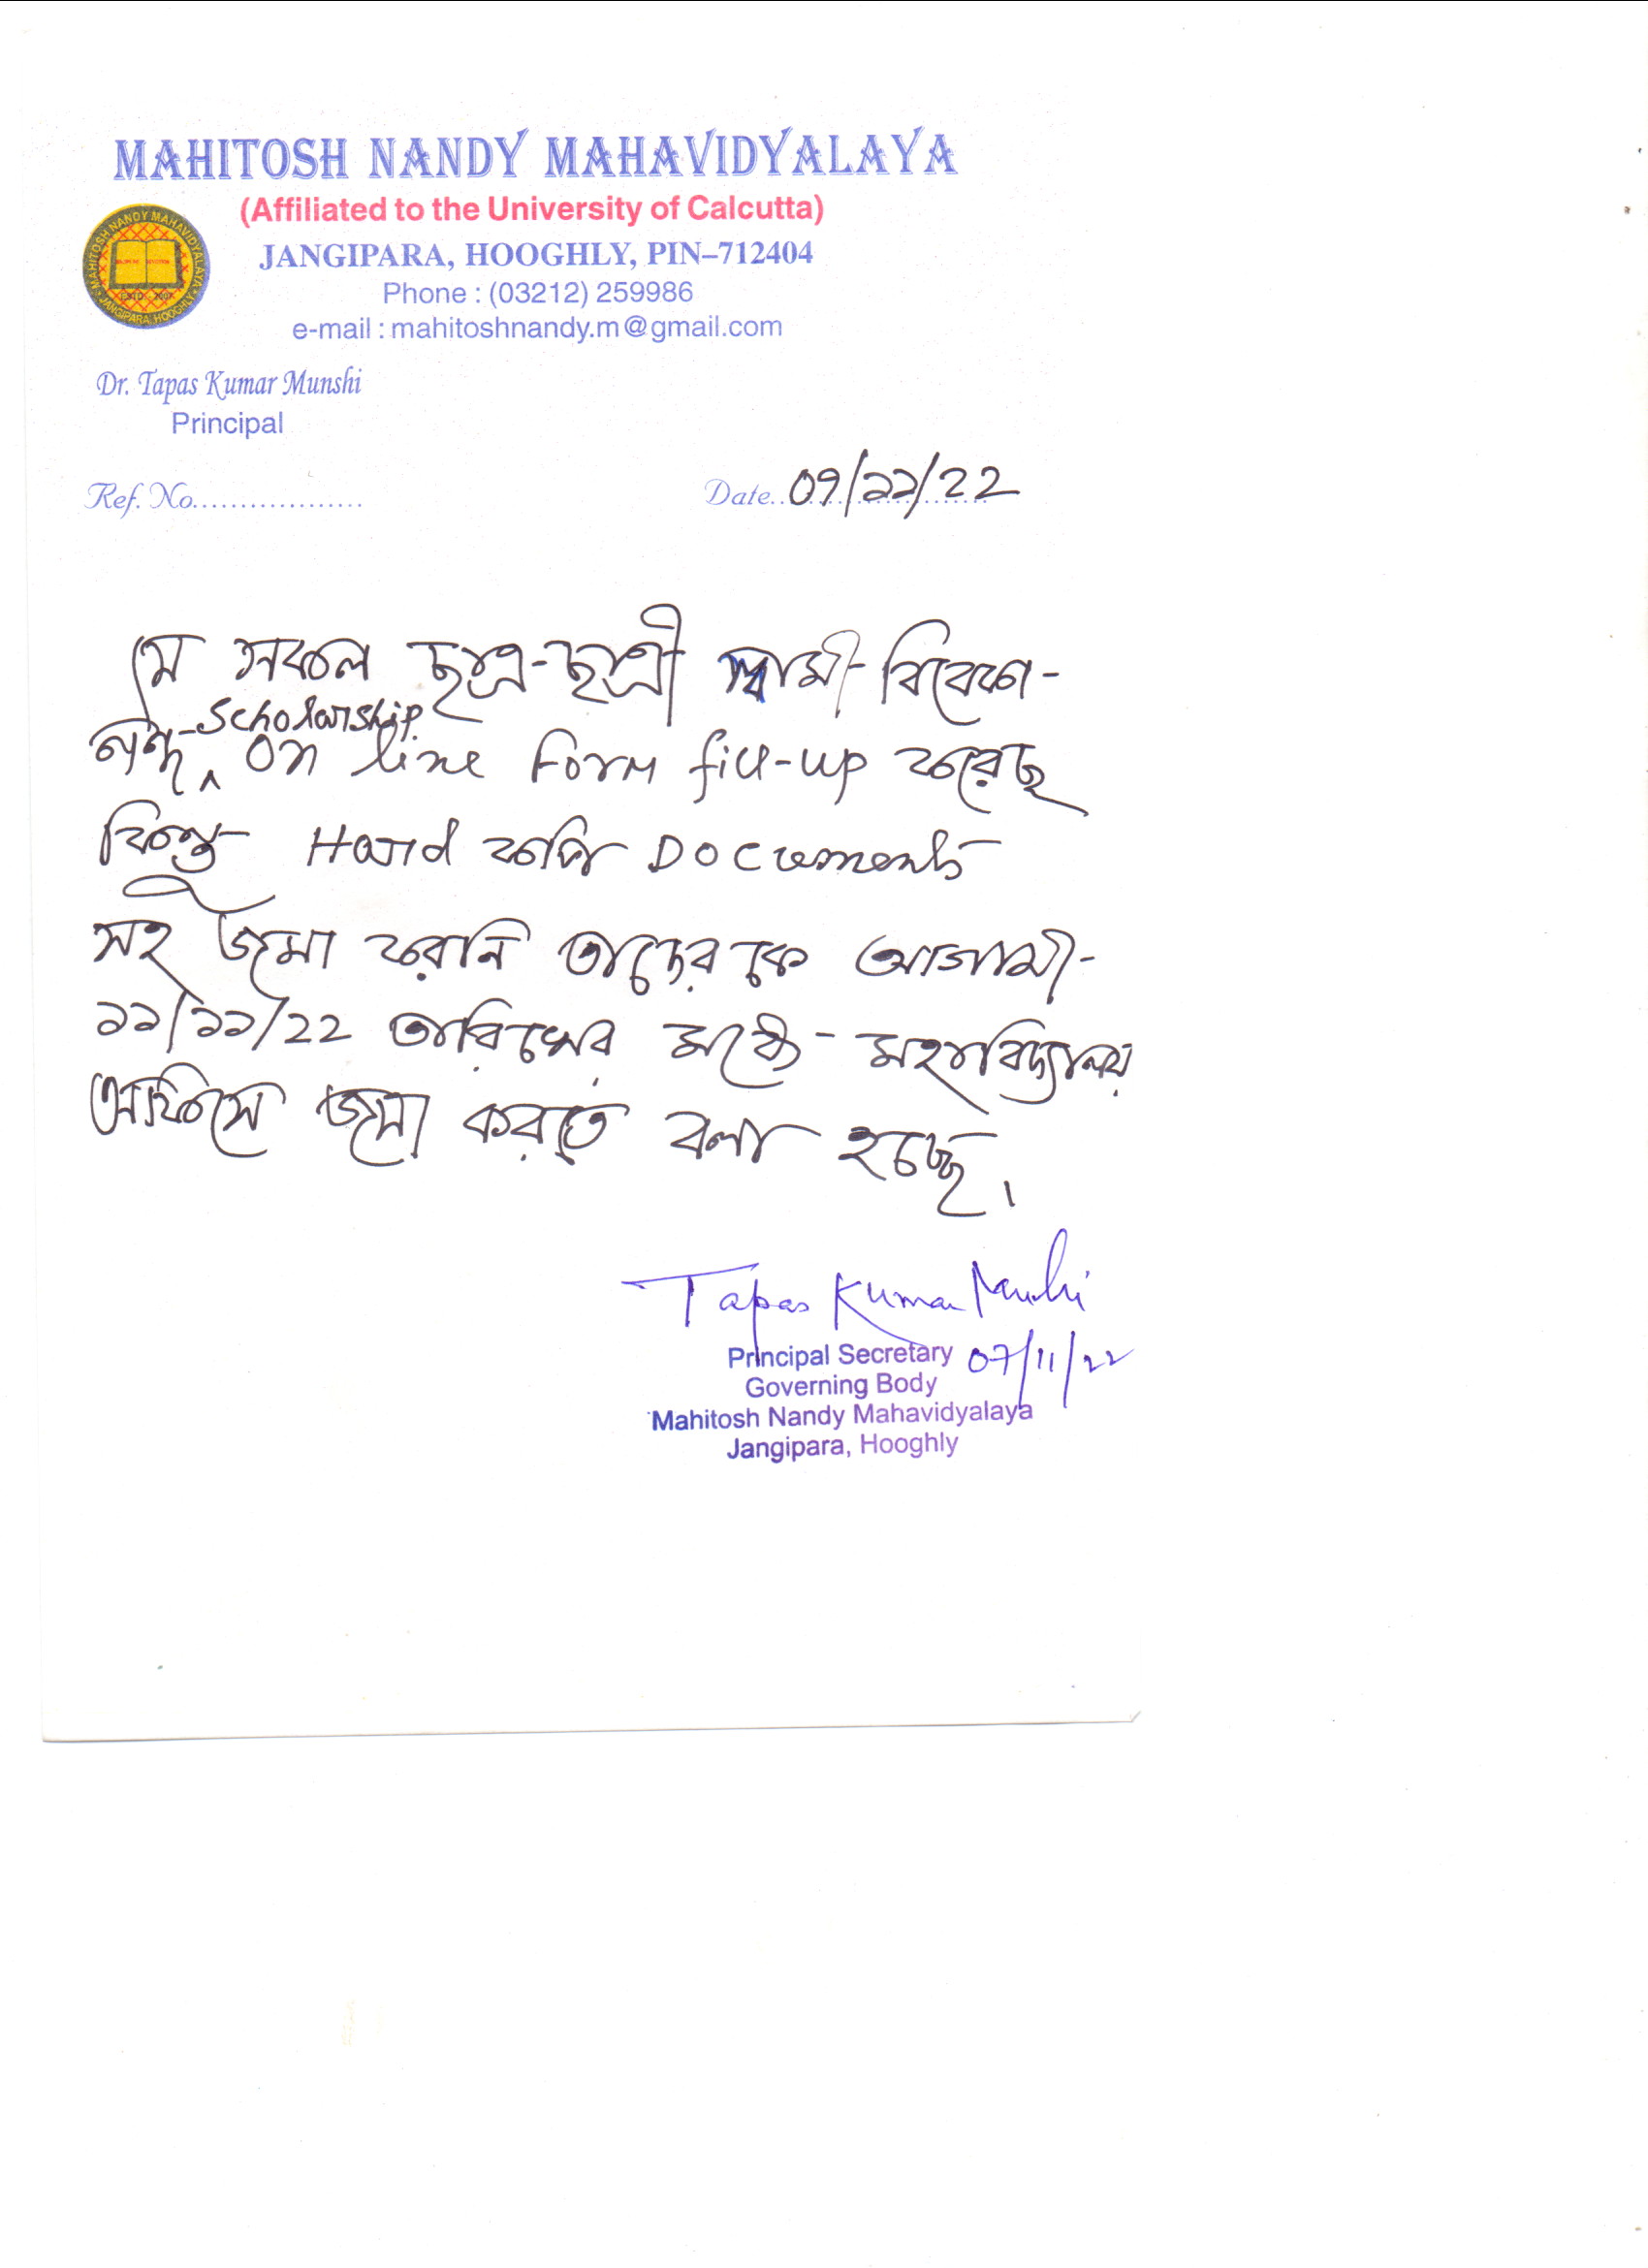 MAHITOSH NANDY MAHAVIDYALAYA
(Affiliated to the University of Calcutta)
JANGIPARA, HOOGHLY, PIN–712404
Phone : (03212) 259986
e-mail : mahitoshnandy.m@gmail.com
MAHITOSH NANDY MAHAVIDYALAYA
JANGIPARA, HOOGHLY
Dr. Tapas Kumar Munshi
Principal
Ref. No..................
Date.. 0৭/১১/২২
যে সকল ছাত্র-ছাত্রী স্বামী বিবেকা-
নন্দ Scholarship On line Form fill-up করেছে
কিন্তু Hard কপি Documents
সহ জমা করেনি তাদেরকে আগামী-
১১/১১/২২ তারিখের মধ্যে মহাবিদ্যালয়
অফিসে জমা করতে বলা হচ্ছে।
Tapas Kumar Munshi
Principal Secretary 07/11/22
Governing Body
Mahitosh Nandy Mahavidyalaya
Jangipara, Hooghly